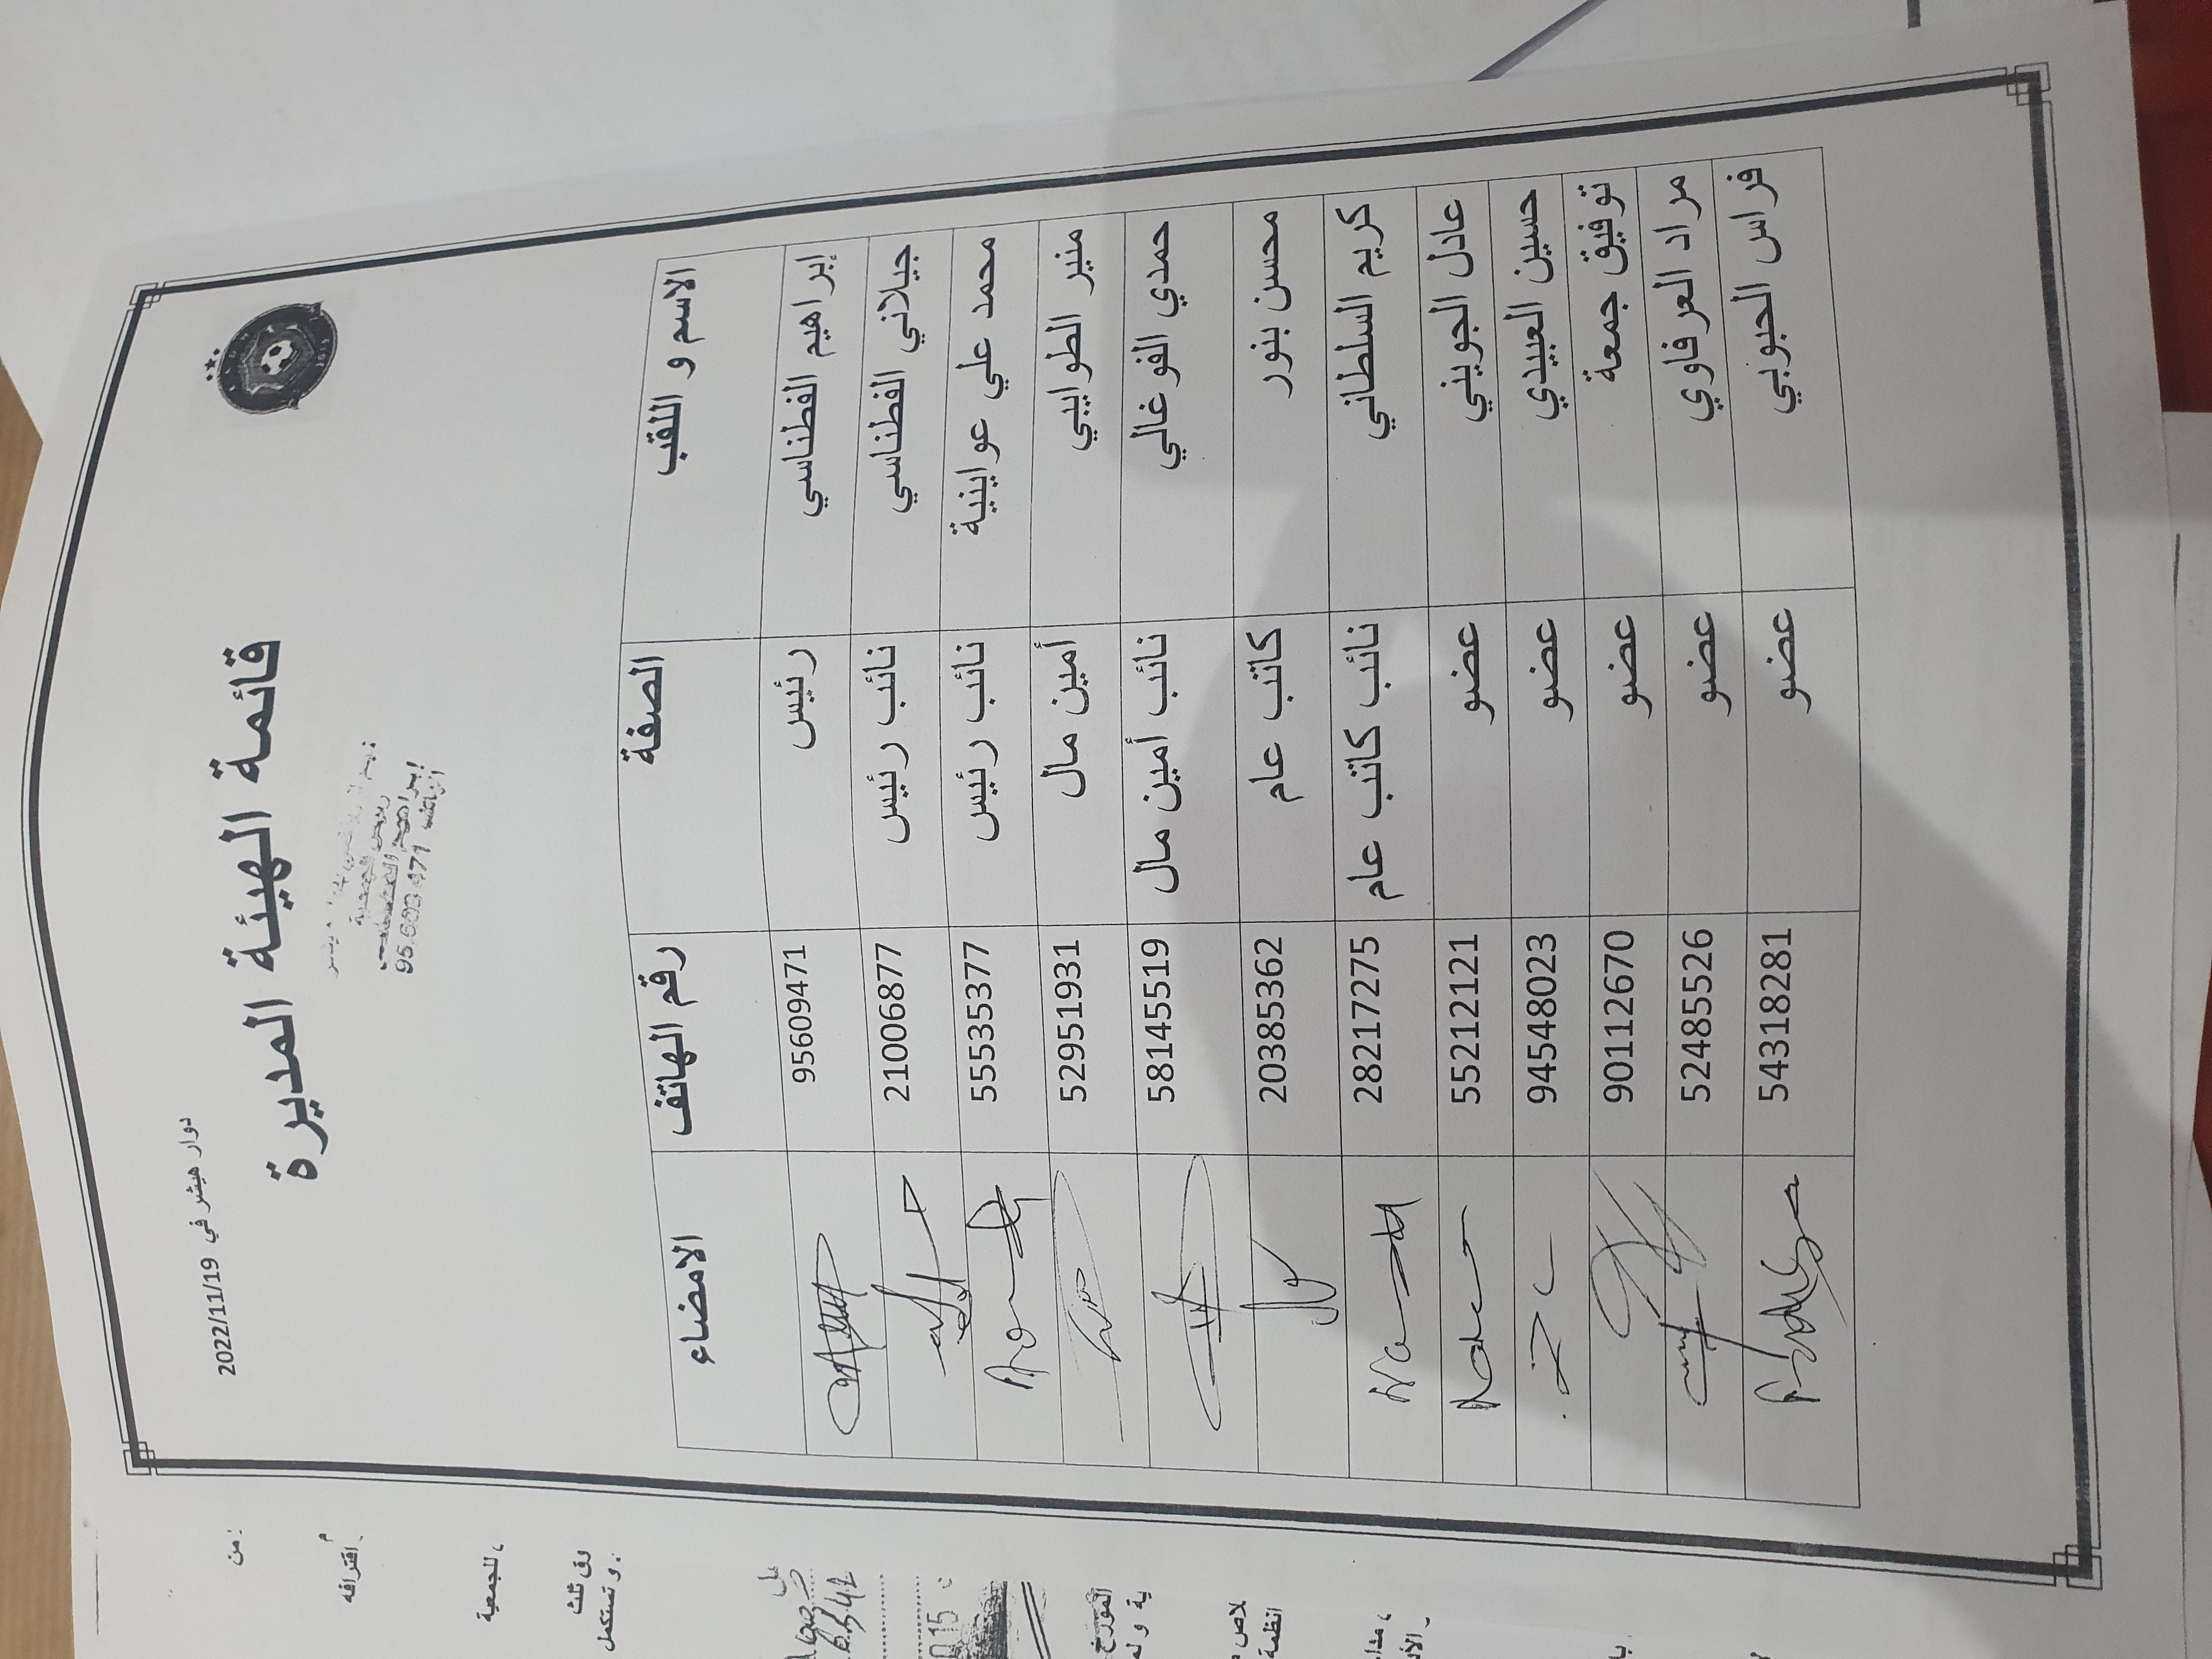 دوار هيشر في 2022/11/19
قائمة الهيئة المديرة
الاسم و اللقب الصفة رقم الهاتف الامضاء
إبراهيم الفطناسي رئيس 95609471
جيلاني الفطناسي نائب رئيس 21006877
محمد علي عواينية نائب رئيس 55535377
منير الطوايبي أمين مال 52951931
حمدي الفوغالي نائب أمين مال 58145519
محسن بنور كاتب عام 20385362
كريم السلطاني نائب كاتب عام 28217275
عادل الجويني عضو 55212121
حسين العبيدي عضو 94548023
توفيق جمعة عضو 90112670
مراد العرفاوي عضو 52485526
فراس الحبوبي عضو 54318281
من
اقترافه
للجمعية
وتستكمل
المؤرخ
ية و لم
انظمة